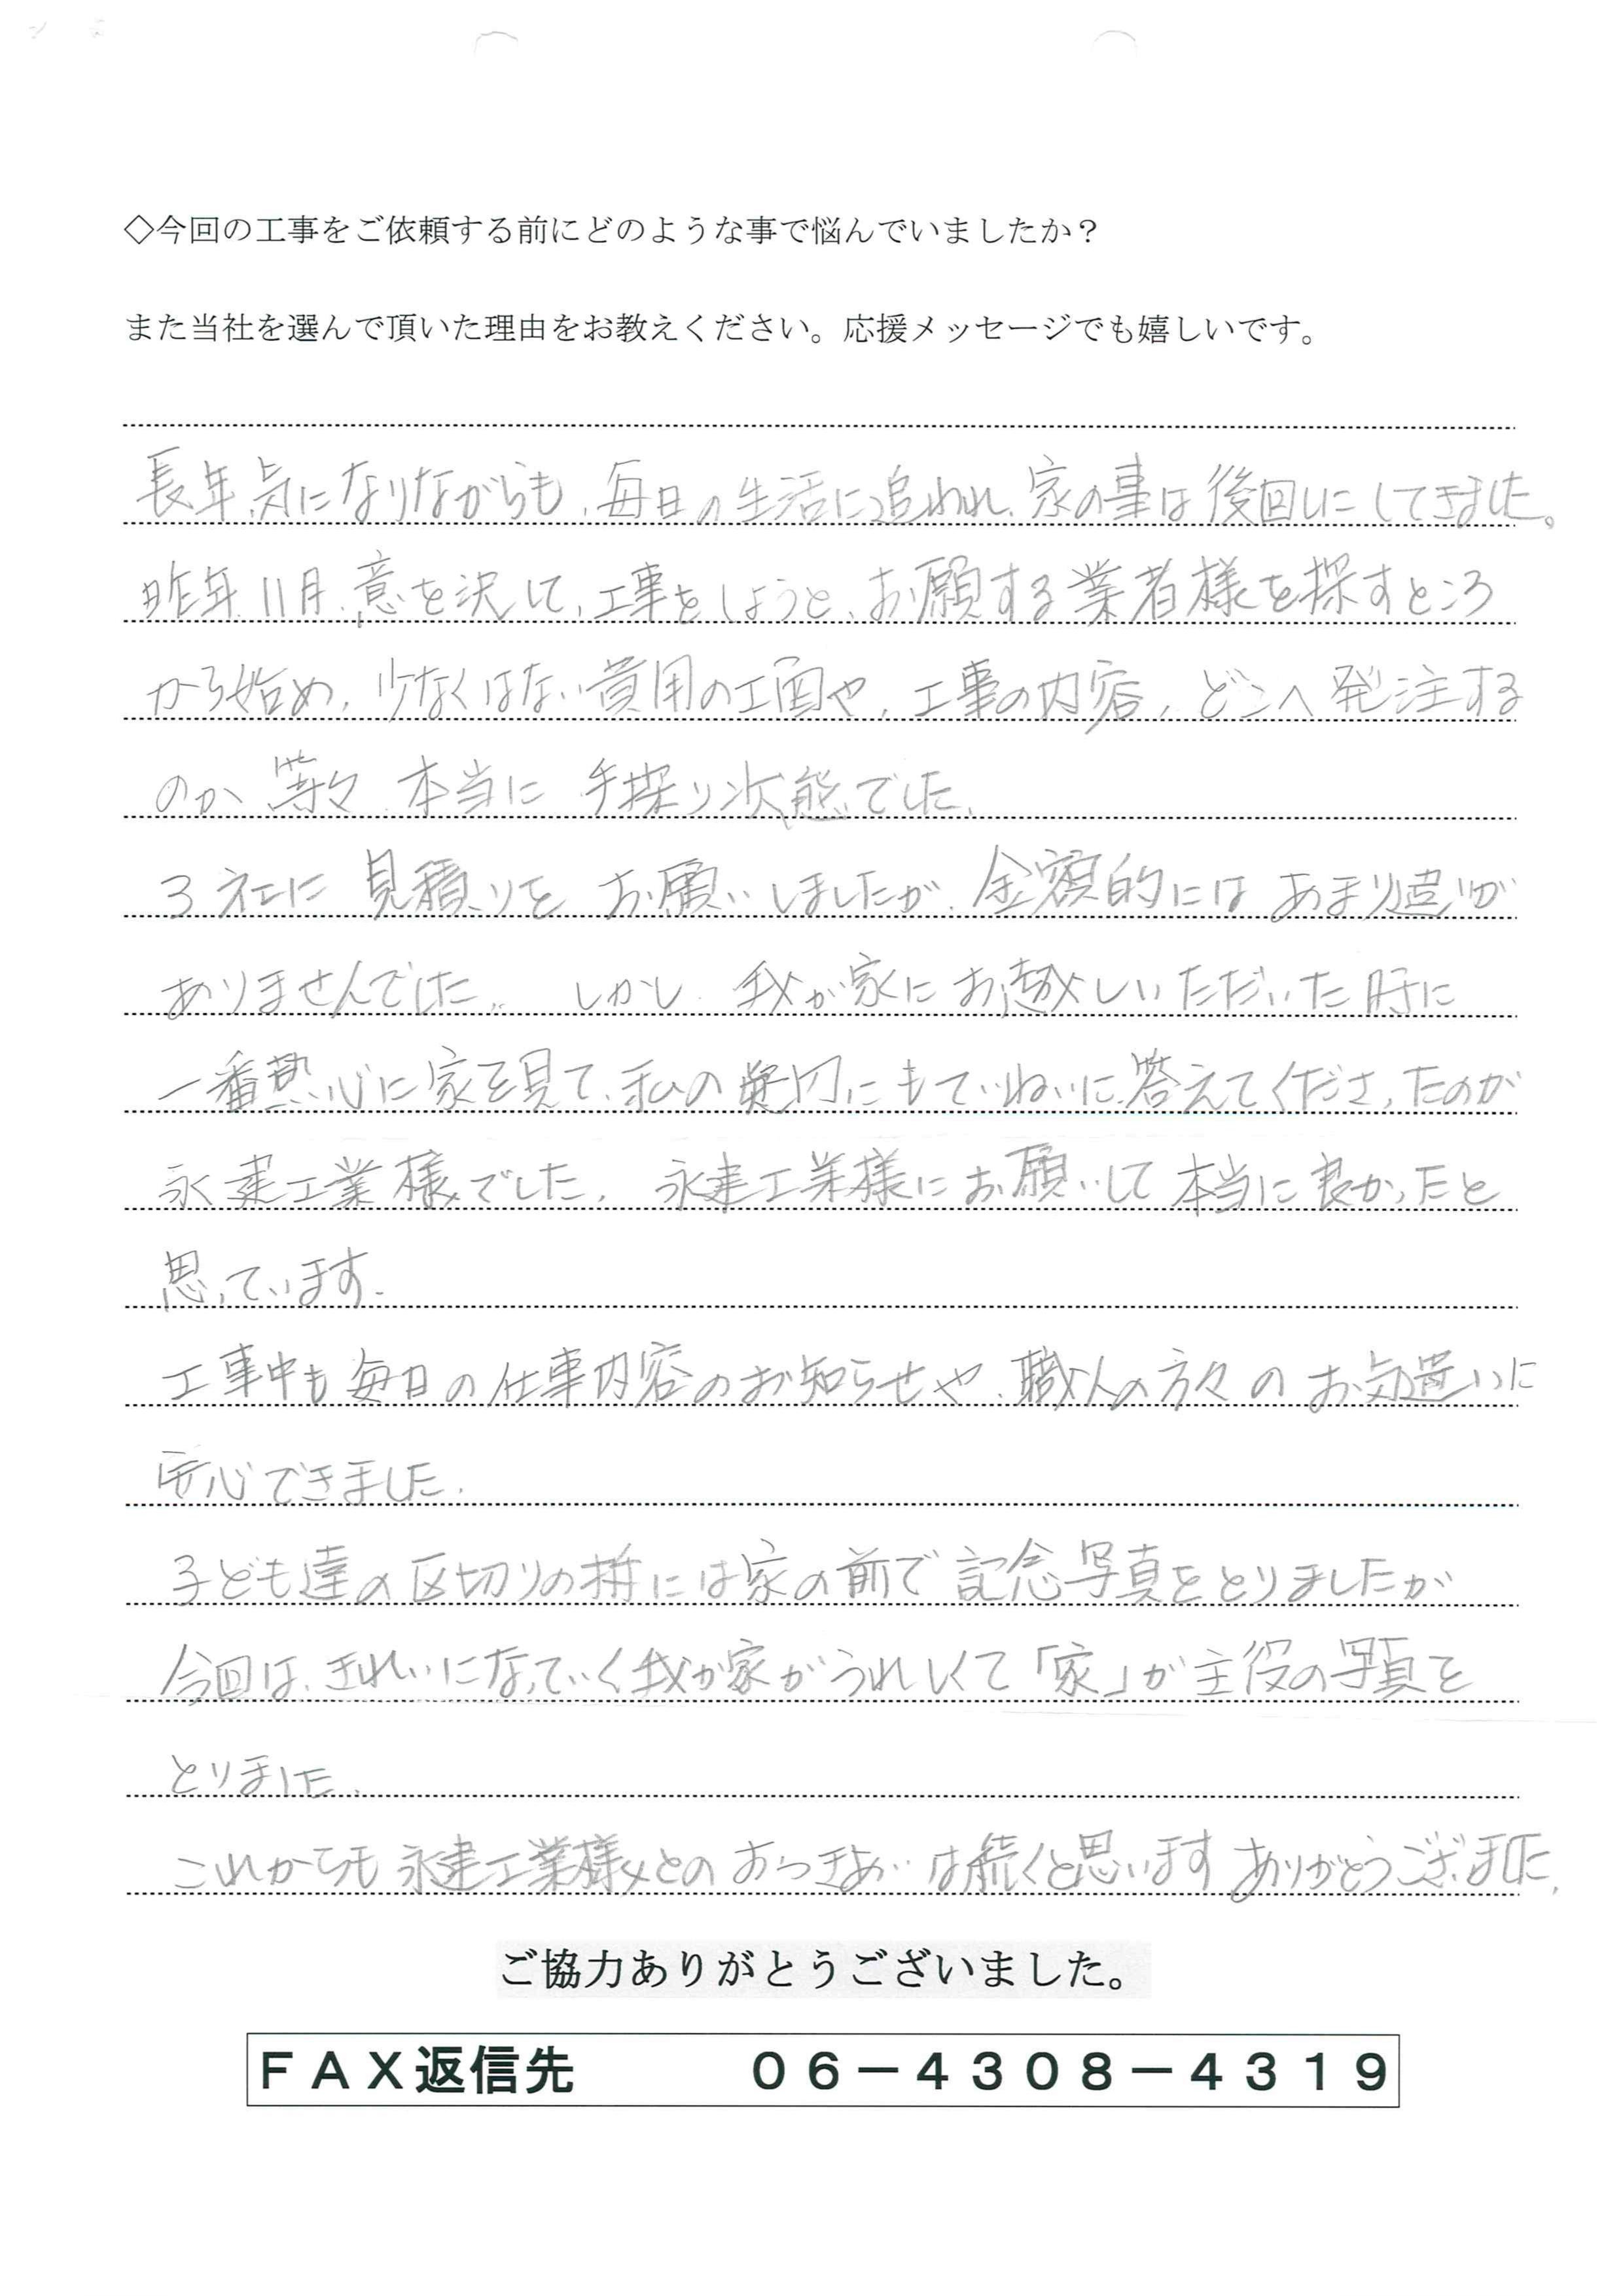 ◇今回の工事をご依頼する前にどのような事で悩んでいましたか？
また当社を選んで頂いた理由をお教えください。応援メッセージでも嬉しいです。
長年気になりながらも、毎日の生活に追われ、家の事は後回しにしてきました。
昨年11月、意を決して、工事をしようと、お願する業者様を探すところ
から始め、少なくはない費用の工面や、工事の内容、どこへ発注する
のか等々、本当に手探り状態でした。
3社に見積りをお願いしましたが、金額的にはあまり違いが
ありませんでした。しかし、我が家にお越しいただいた時に
一番熱心に家を見て、私の質問にもていねいに答えてくださったのが
永建工業様でした。永建工業様にお願いして本当に良かったと
思っています。
工事中も毎日の仕事内容のお知らせや、職人の方々のお気遣いに
安心できました。
子ども達の区切りの時には家の前で記念写真をとりましたが
今回は、きれいになっていく我が家がうれしくて「家」が主役の写真を
とりました。
これからも永建工業様とのおつきあいは続くと思います ありがとうございました。
ご協力ありがとうございました。
ＦＡＸ返信先　　　０６－４３０８－４３１９